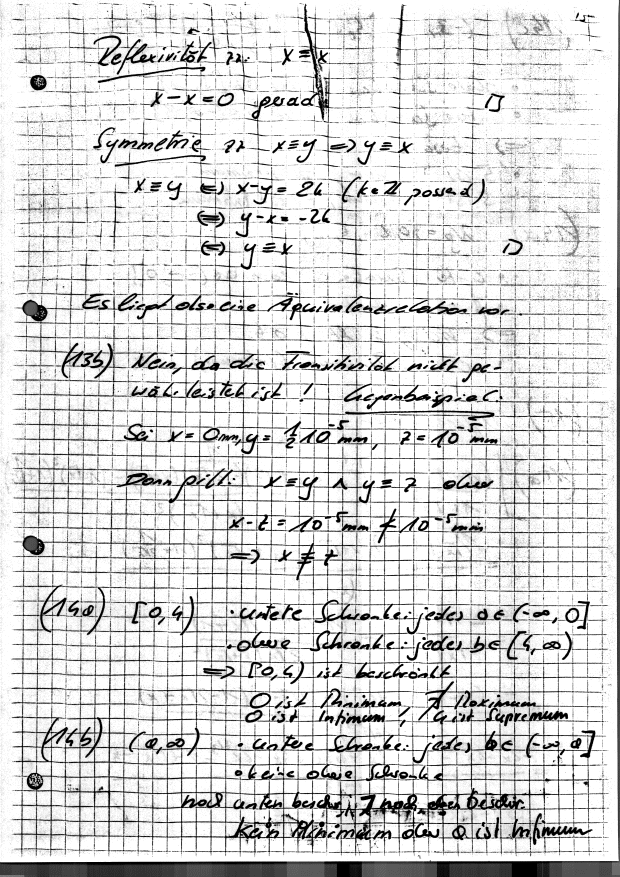 15
Reflexivität zz: x ≡ x
x-x=0 gerad □
Symmetrie zz x≡y ⇒ y≡x
x≡y ⇔ x-y = 2k (k∈ℤ passend)
⇔ y-x = -2k
⇔ y≡x □
Es liegt also eine Äquivalenzrelation vor.
(13b) Nein, da die Transitivität nicht ge-
währleistet ist! Gegenbeispiel:
Sei x = 0mm, y = 1/2 10^-5 mm, z = 10^-5 mm
Dann gilt: x≡y ∧ y≡z aber
x-z = 10^-5 mm ≮ 10^-5 mm
⇒ x ≢ z
(14a) [0,4) • untere Schranke: jedes a∈(-∞,0]
• obere Schranke: jedes b∈[4,∞)
⇒ [0,4) ist beschränkt
0 ist Minimum, ∄ Maximum
0 ist Infimum, 4 ist Supremum
(14b) (a,∞) • untere Schranke: jedes b∈(-∞,a]
• keine obere Schranke
nach unten beschr., nach oben beschr.
kein Minimum aber a ist Infimum